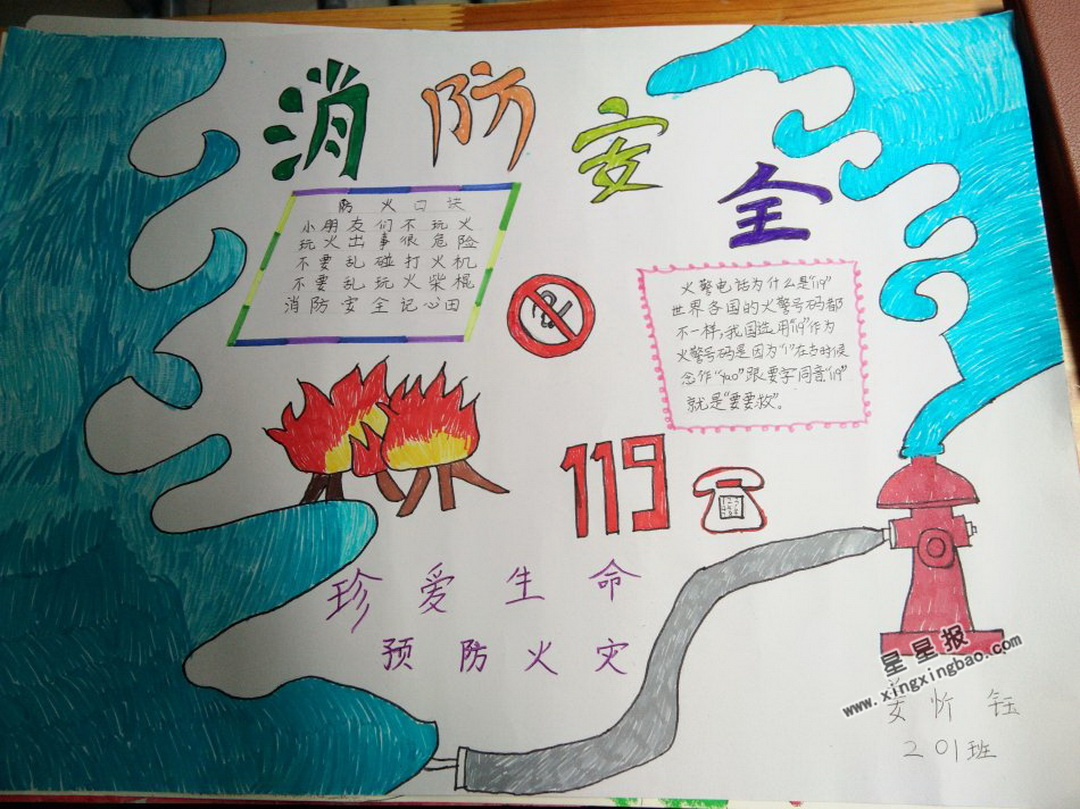 消防安全
防火口诀
小朋友们不玩火
玩火出事很危险
不要乱碰打火机
不要乱玩火柴棍
消防安全记心田
火警电话为什么是"119"
世界各国的火警号码都
不一样,我国选用"119"作为
火警号码是因为"1"在古时候
念作"yao"跟要字同音"119"
就是"要要救"。
119
珍爱生命
预防火灾
星星报
www.xingxingbao.com
姜忻钰
201班